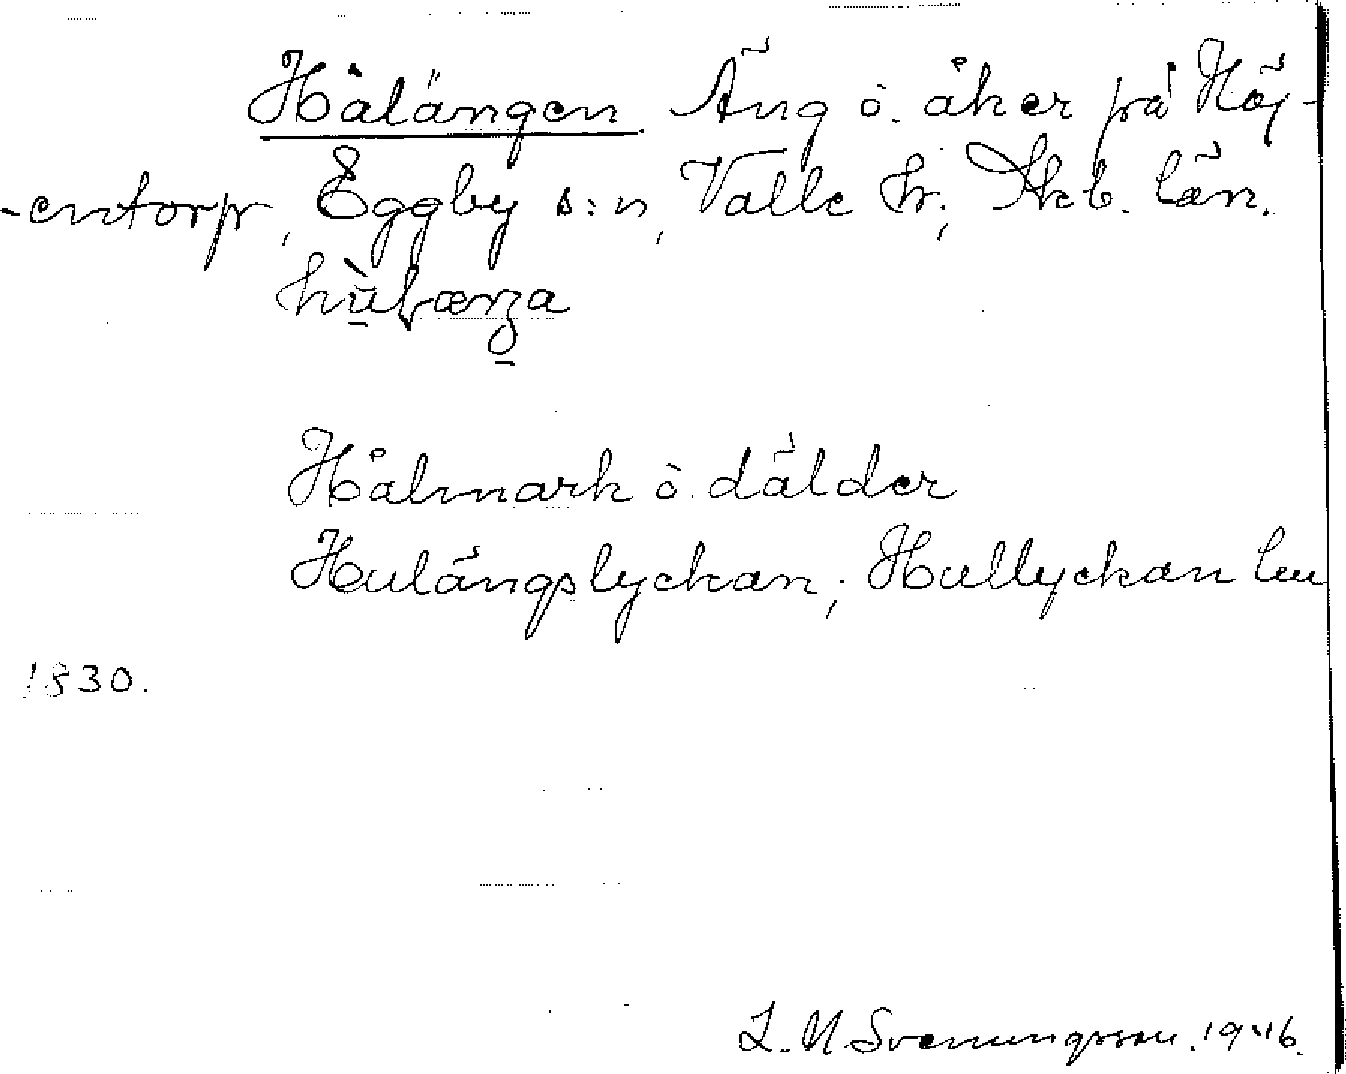 Hålängen Äng o. åker på Höj-
-entorp, Eggby s:n, Valle hr; Skb. län.
Hålmark o. dälder
Hulängslyckan; Hullyckan lu
1830.
L. M. Svenungsson. 1946.